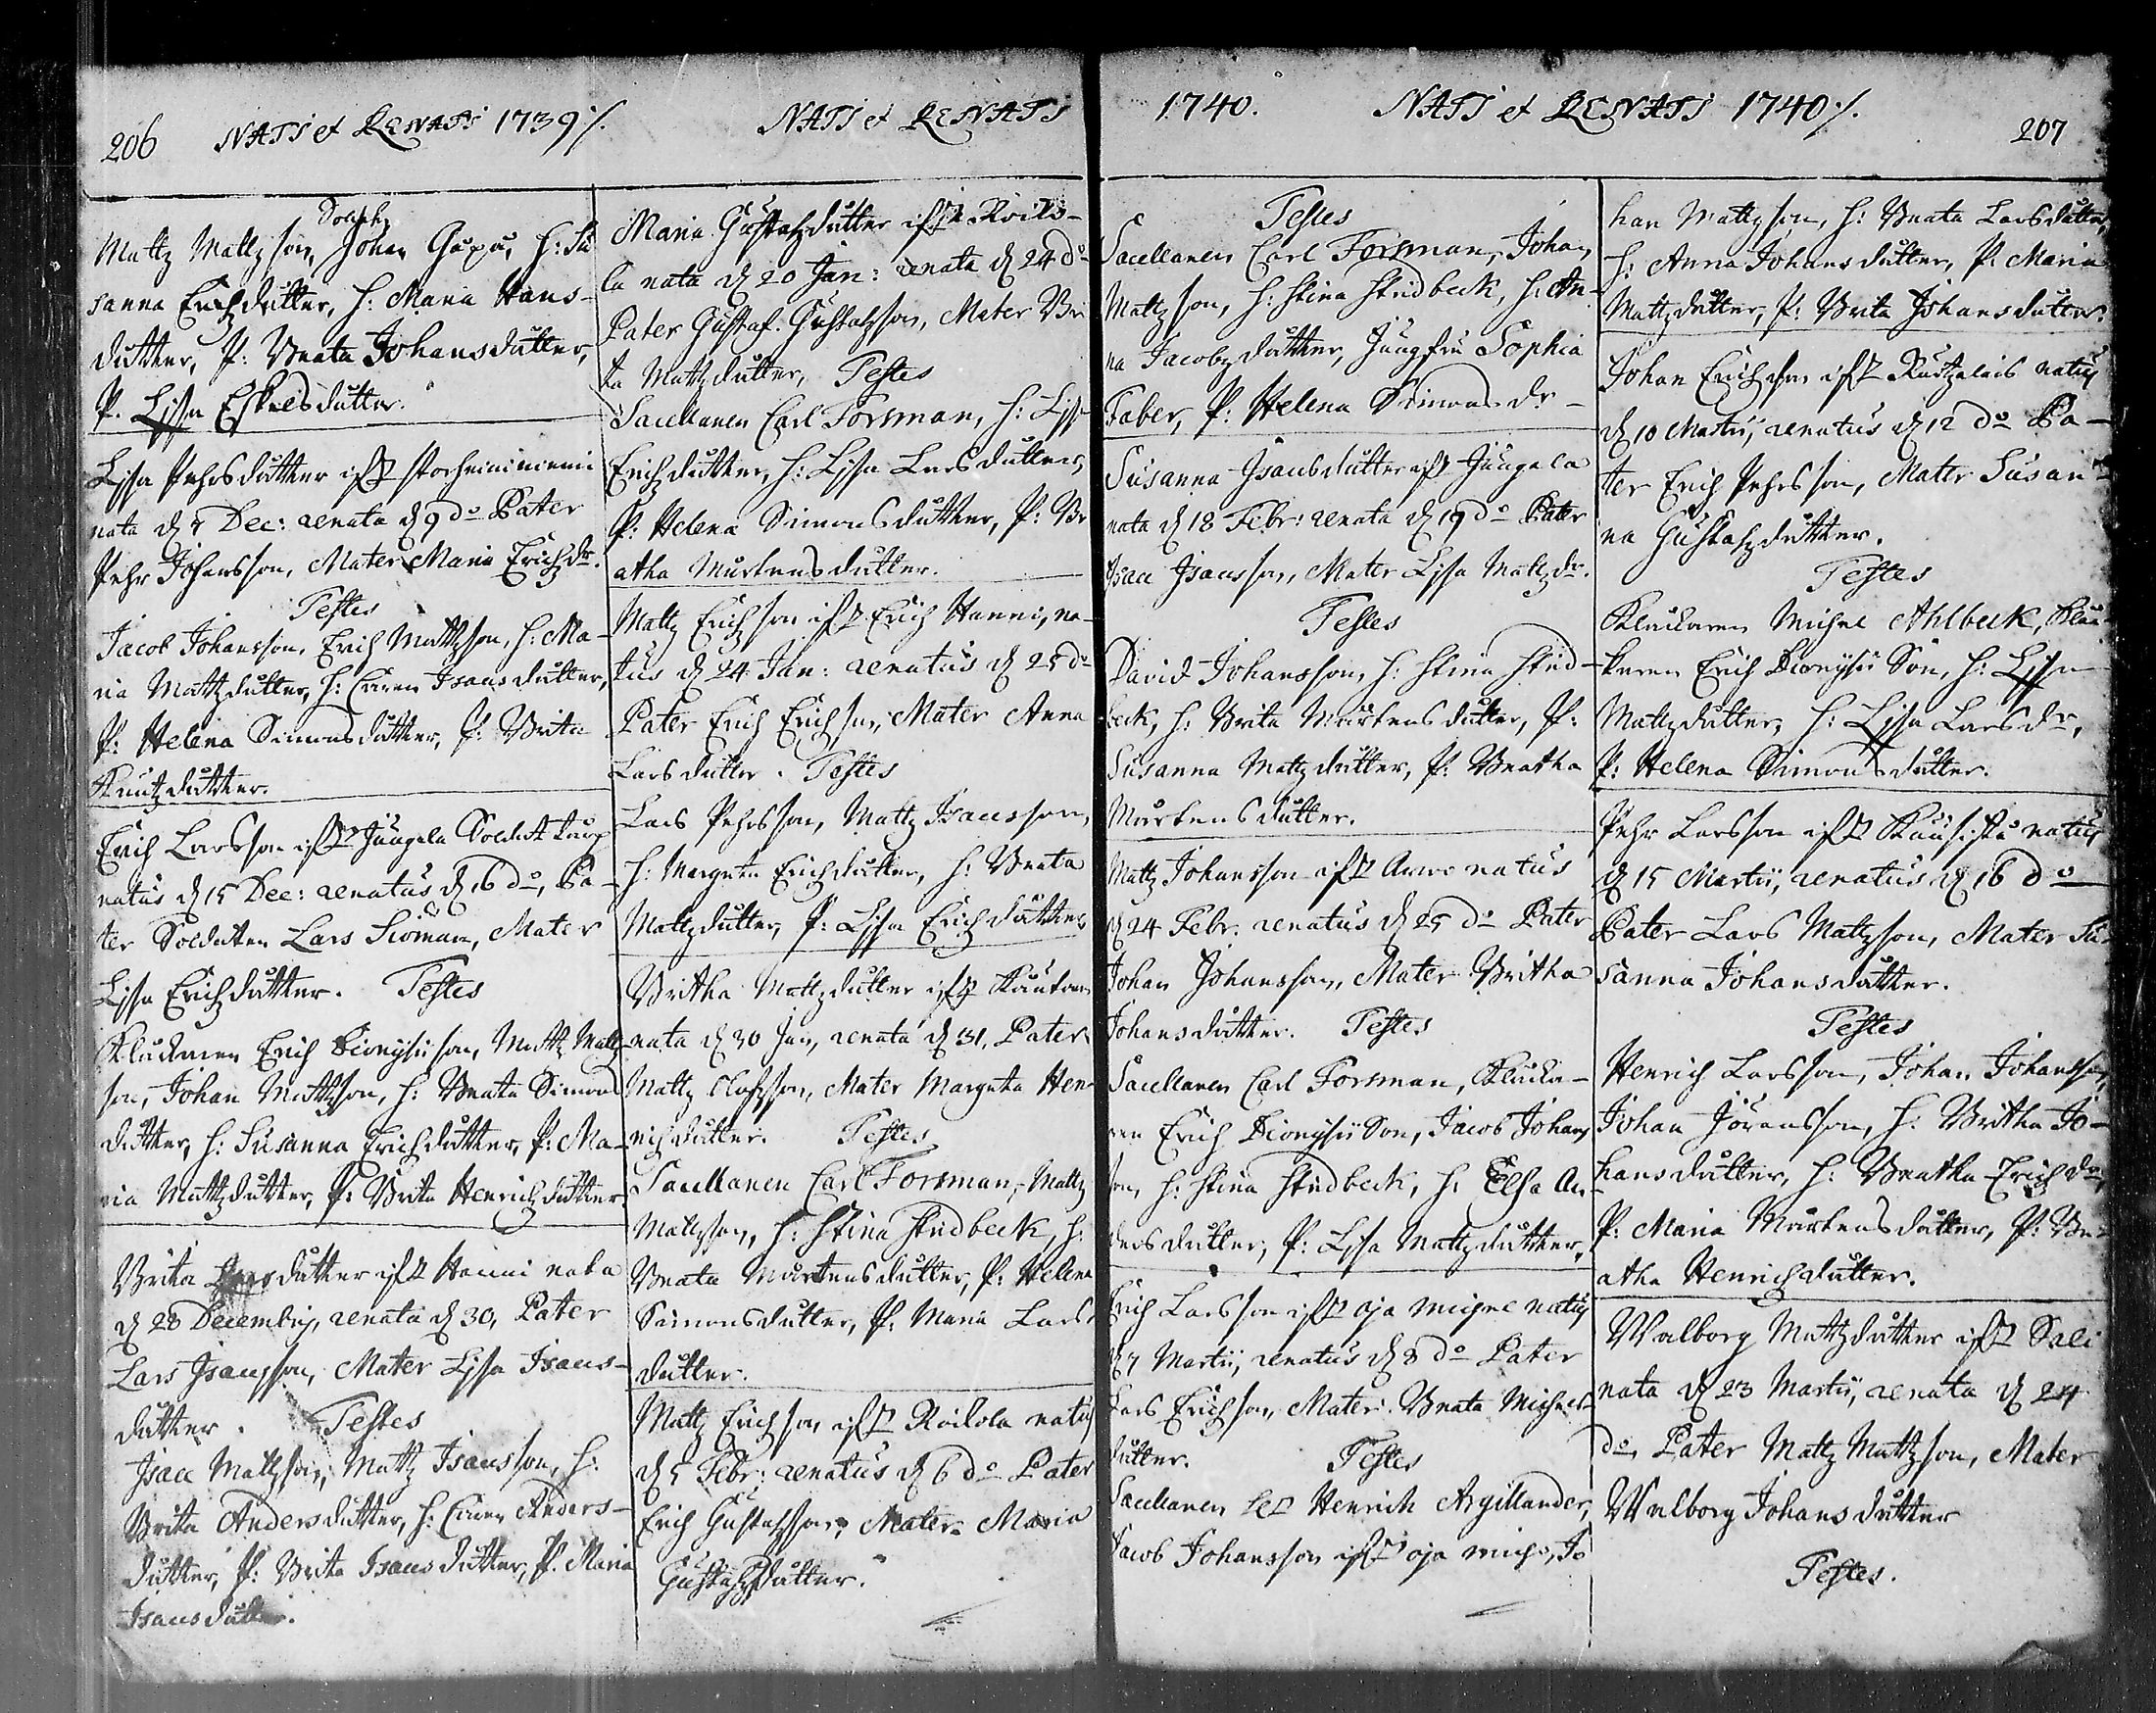 206 NATI et RENATI 1739 ⁒
NATI et RENATI
1740.
NATI et RENATI 1740 ⁒
207
Soldat
Mattz Mattzson, Johan Gupu, H: Su
sanna Erichdutter, H: Maria Hans-
dutter, P: Beata Johansdutter,
P. Lisa Eskilsdutter.
Lisa Pehrsdutter ifr Porheiniemi
nata d 7 Dec: renata d 9 do Pater
Pehr Johansson, Mater Maria Erichdr.
Testes
Jacob Johansson, Erich Mattzson, H: Ma-
ria Mattzdutter, H: Caren Isaacsdutter,
P: Helena Simonsdutter, P: Brita
Knutzdutter.
Erich Larsson ifr Jungela Soldat torp
natus d 15 Dec: renatus d 16 do, Pa-
ter Soldaten Lars Sioman, Mater
Lisa Erichdutter. Testes
Kluckaren Erich Dionysiison, Mattz Mattz
son, Johan Mattzson, H: Beata Simons
dutter, H: Susanna Erichdutter, P: Ma-
ria Mattzdutter, P: Brita Henrichdutter
Brita Larsdutter ifr Hanni nata
d 28 Decembrij, renata d 30, Pater
Lars Isacsson, Mater Lisa Isaacs-
dutter. Testes
Isaac Mattzson, Mattz Isaacsson, H:
Brita Andersdutter, H: Caren Anders-
dutter, P: Brita Isaacsdutter, P. Maria
Isaacsdutter.
Maria Gustafzdutter ifr Koiko-
la nata d 20 Jan: renata d 24 do
Pater Gustaf Gustafzson, Mater Bri
ta Mattzdutter, Testes
Sacellanen Carl Forsman, H: Lisa
Erichdutter, H: Lisa Larsdutter,
P: Helena Simonsdutter, P: Be
atha Mårtensdutter.
Mattz Erichson ifr Erich Hanni, na-
tus d 24 Jan: renatus d 25 do
Pater Erich Erichson, Mater Anna
Larsdutter. Testes
Lars Pehrsson, Mattz Isaacsson,
H: Margeta Erichdutter, H: Beata
Mattzdutter, P: Lisa Erichdutter
Britha Mattzdutter ifr
nata d 30 Jan, renata d 31, Pater
Mattz Olofsson, Mater Margeta Hen-
richdutter. Testes
Sacellanen Carl Forsman, Mattz
Mattzson, H: Stina Studbeck, H:
Beata Mårtensdutter, P: Helena
Simonsdutter, P. Maria Lars-
dutter.
Mattz Erichson ifr Koikola natus
d 5 Febr: renatus d 6 do Pater
Erich Gustafzson, Mater Maria
Gustafzdutter.
Testes
Sacellanen Carl Forsman, Johan
Mattzson, H: Stina Studbeck, H: An-
na Jacobzdutter, Jungfru Sophia
Faber, P: Helena Simonsdr-
Susanna Isaacsdutter ifr Jungela
nata d 18 Febr: renata d 19 do Pater
Isaac Isaacsson, Mater Lisa Mattzdr.
Testes
David Johansson, H: Stina Stud-
beck, H: Brita Mårtensdutter, P:
Susanna Mattzdutter, P: Beatha
Mårtensdutter.
Mattz Johansson ifr natus
d 24 Febr. renatus d 25 do Pater
Johan Johansson, Mater Britha
Johansdutter. Testes
Sacellanen Carl Forsman, Klucka-
ren Erich Dionysii Son, Jacob Johans
son, H: Stina Studbeck, H: Elsa An-
dersdutter, P: Lisa Mattzdutter,
Erich Larsson ifr Oja Michel natus
d 7 Martii, renatus d 8 do Pater
Lars Erichson, Mater Beata Michels-
dutter. Testes
Sacellanen Henrich Argillander,
Jacob Johansson ifr oja mich:, Jo
han Mattzson, H: Beata Larsdutter,
H: Anna Johansdutter, P. Maria
Mattzdutter, P: Brita Johansdutter.
Johan Erichson ifr natus
d 10 Martii, renatus d 12 do Pa-
ter Erich Pehrsson, Mater Susan-
na Gustafzdutter.
Testes
Kluckaren Michel Ahlbeck, Kluc-
karen Erich Dionysii Son, H: Lisa
Mattzdutter, H: Lisa Larsdr,
P: Helena Simonsdutter.
Pehr Larsson ifr natus
d 15 Martii, renatus d 16 do
Pater Lars Mattzson, Mater Su-
sanna Johansdutter.
Testes
Henrich Larsson, Johan Johansson,
Johan Jöransson, H: Britha Jo-
hansdutter, H: Beatha Erichdr,
P: Maria Mårtensdutter, P: Be-
atha Henrichdutter.
Walborg Mattzdutter ifr Sali
nata d 23 Martii, renata d 24
do, Pater Mattz Mattzson, Mater
Walborg Johansdutter
Testes.